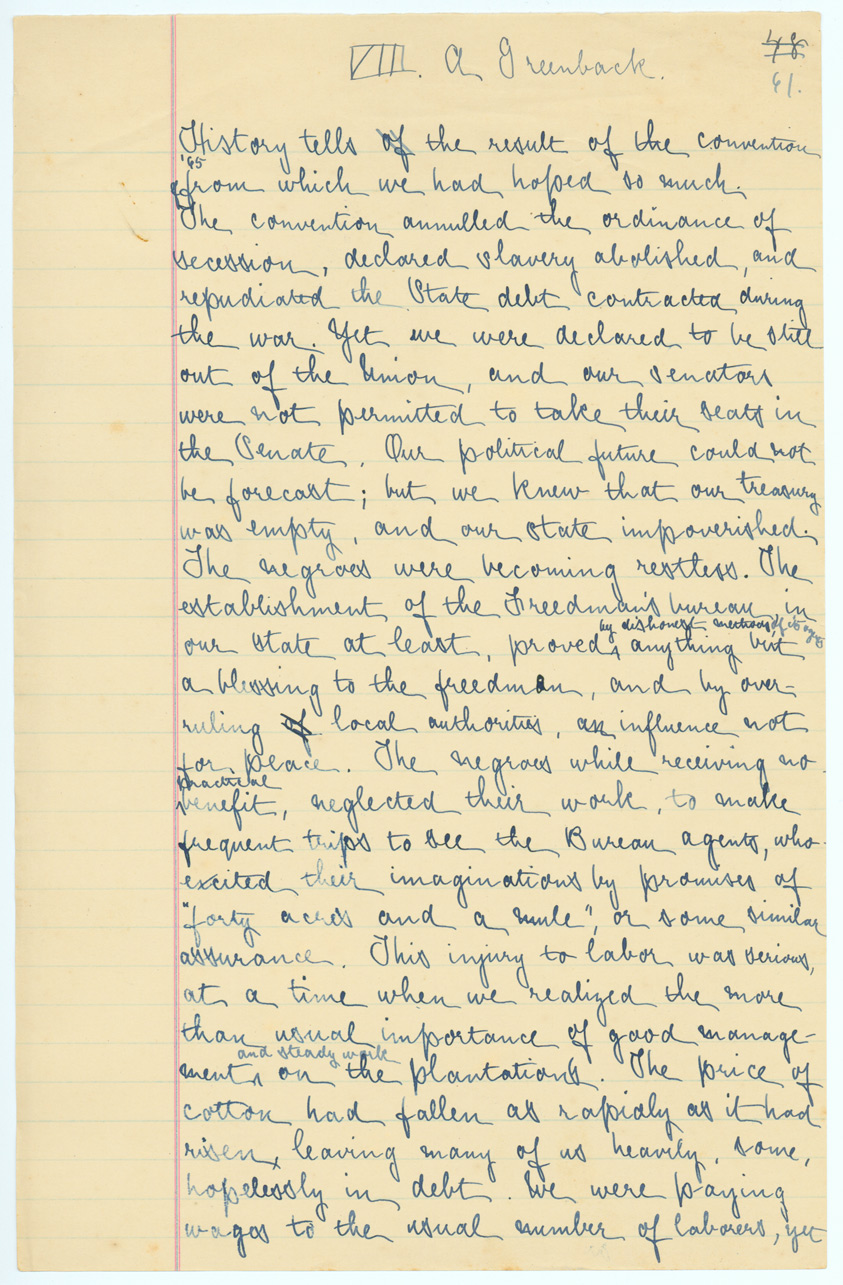 48
VIII. A Greenback.
61.
History tells of the result of the convention
'65
from which we had hoped so much.
The convention annulled the ordinance of
secession, declared slavery abolished, and
repudiated the State debt contracted during
the war. Yet we were declared to be still
out of the Union, and our senators
were not permitted to take their seats in
the Senate. Our political future could not
be forecast; but we knew that our treasury
was empty, and our state impoverished.
The negroes were becoming restless. The
establishment of the Freedman's bureau, in
by dishonest methods of its agts
our state at least, proved, anything but
a blessing to the freedman, and by over-
ruling of local authorities, an influence not
for peace. The negroes while receiving no
practical
benefit, neglected their work, to make
frequent trips to see the Bureau agents, who
excited their imaginations by promises of
"forty acres and a mule", or some similar
assurance. This injury to labor was serious,
at a time when we realized the more
than usual importance of good manage-
and steady work
ment on the plantations. The price of
cotton had fallen as rapidly as it had
risen, leaving many of us heavily, some,
hopelessly in debt. We were paying
wages to the usual number of laborers, yet